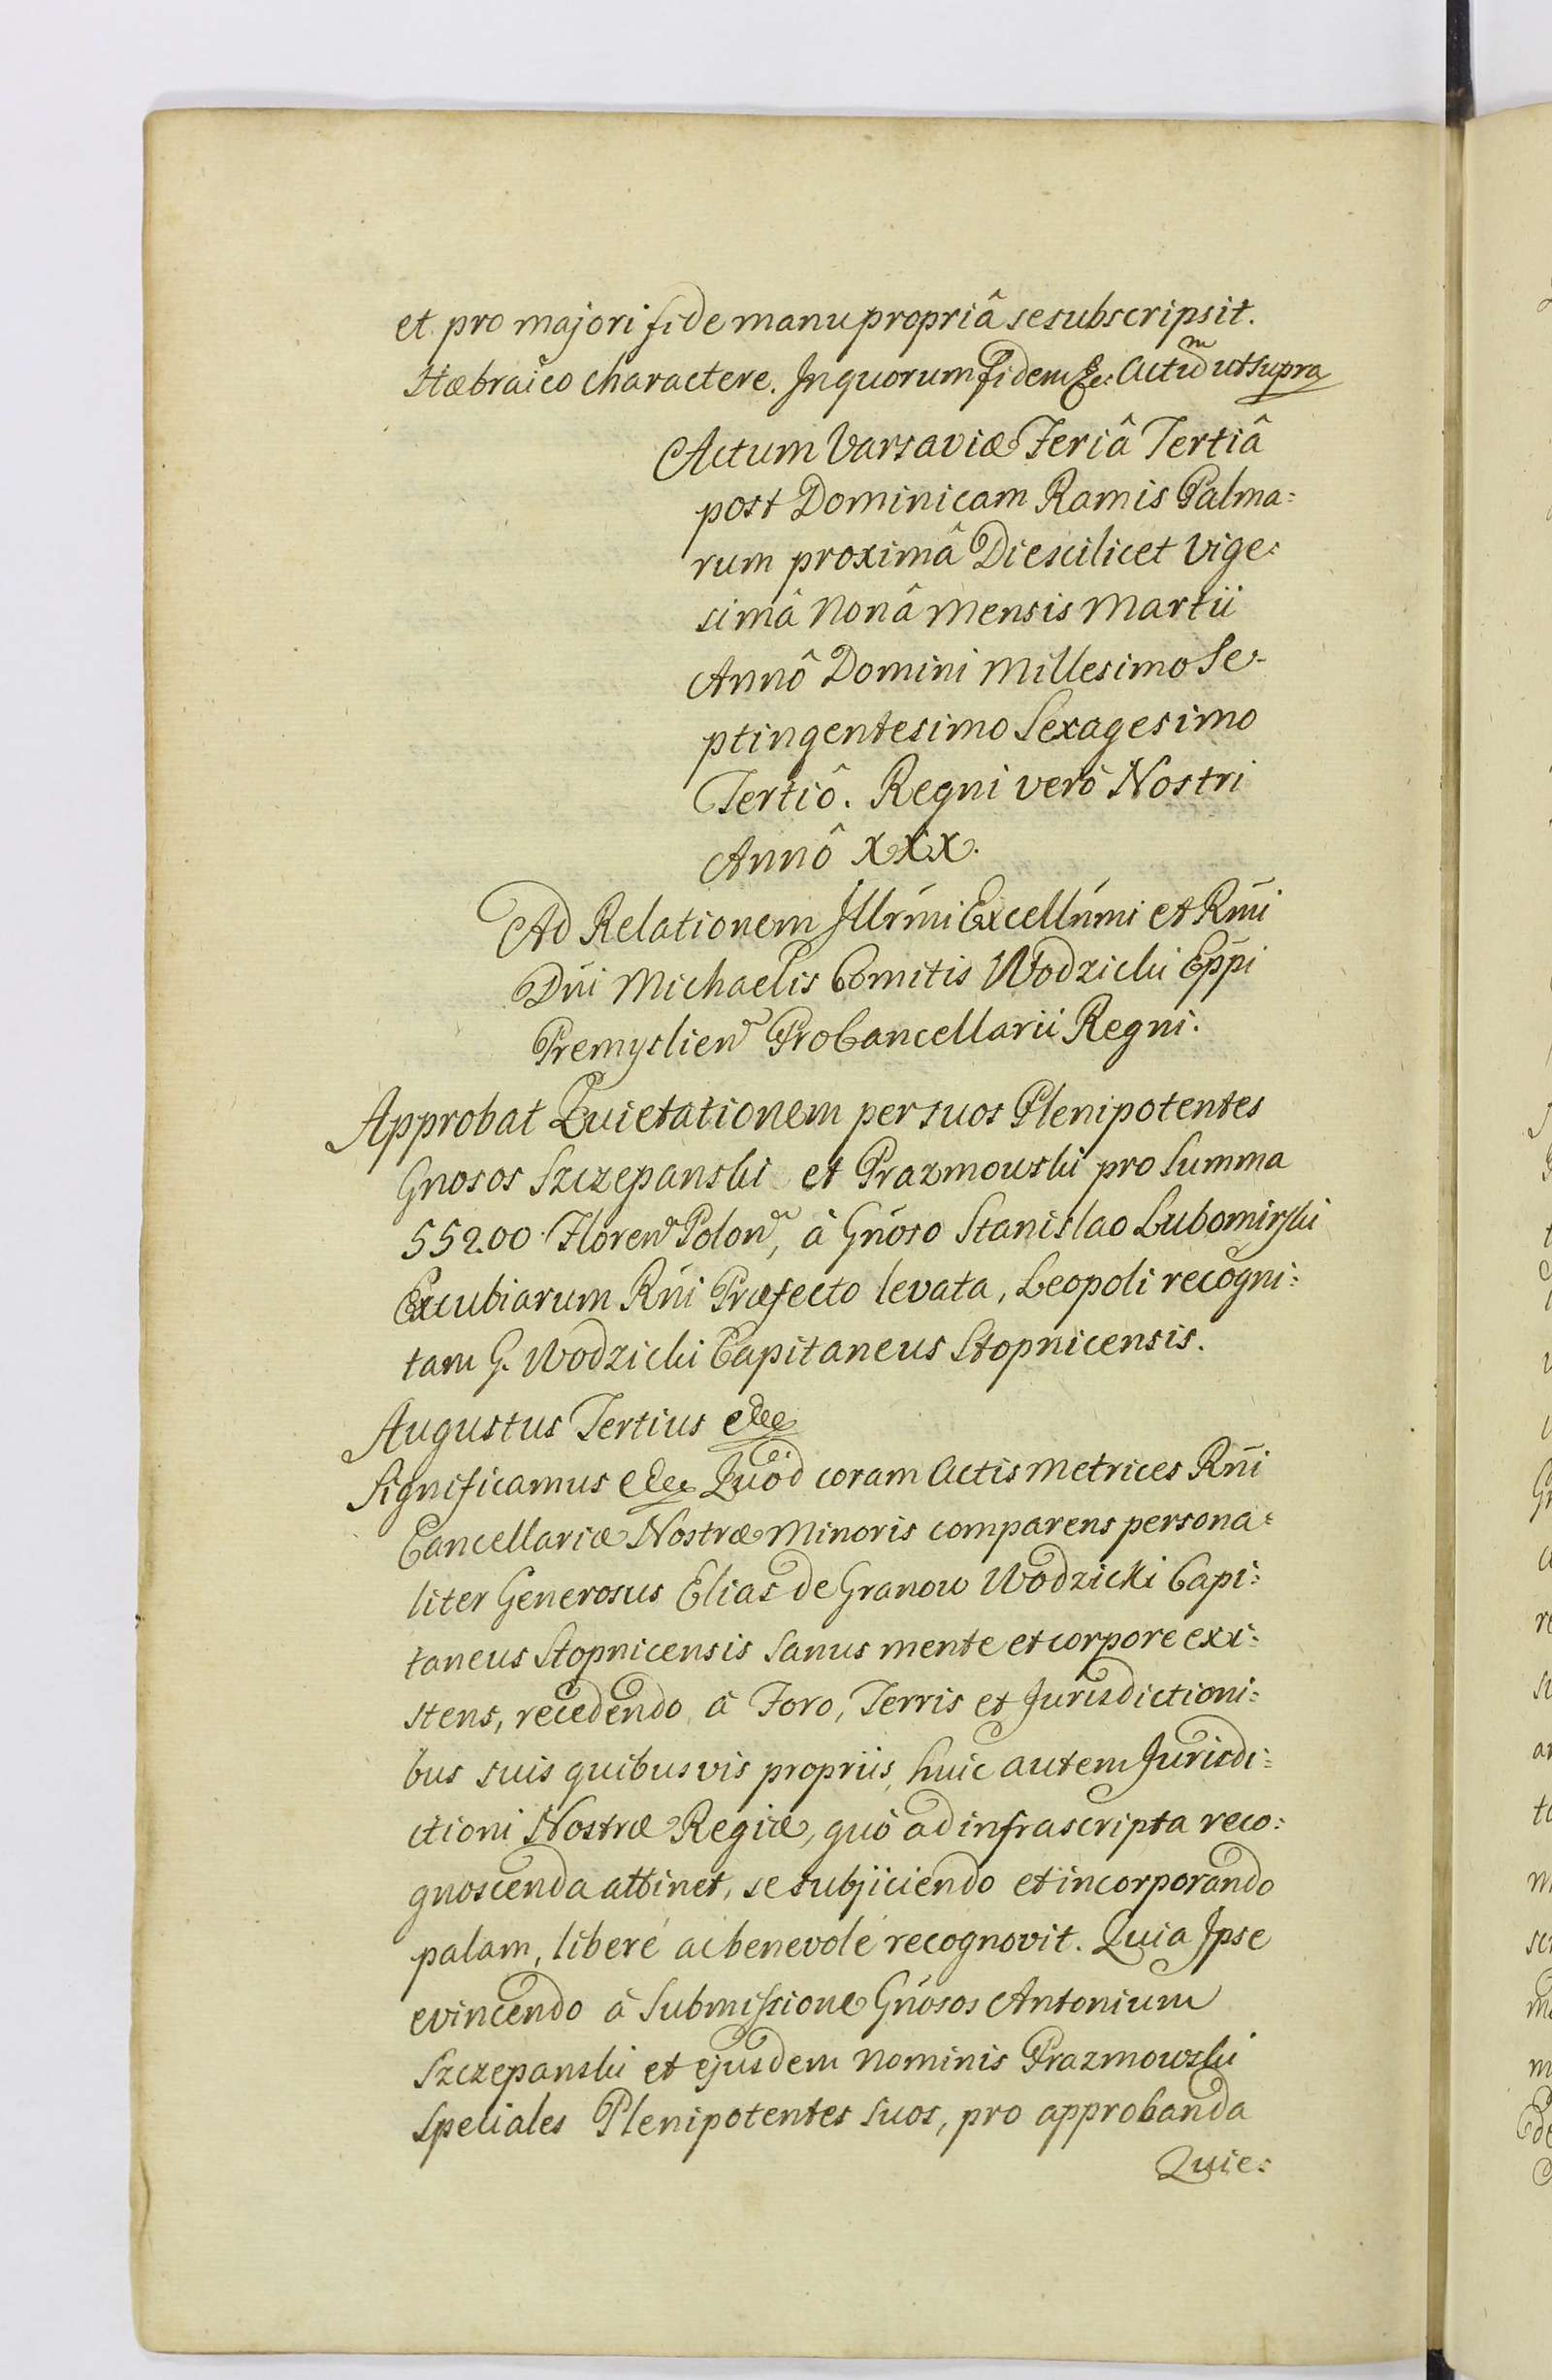 et pro majori fide manu propriâ se subscripsit.
Hæbraico charactere. In quorum fidem &c. Actũm ut supra
Actum Varsaviæ Feriâ Tertiâ
post Dominicam Ramis Palma:
rum proximâ Die scilicet Vige:
simâ Nonâ Mensis Martii
Annô Domini Millesimo Se:
ptingentesimo Sexagesimo
Tertiô. Regni verô Nostri
Annô XXX.
Ad Relationem Illrm̃i Excelln̄mi et Rm̄i
Dn̄i Michaelis Comitis Wodzicki Epp̄i
Premyslien̄ ProCancellarii Regni.
Approbat Quietationem per suos Plenipotentes
Gnosos Szczepanski et Prazmowski pro Summa
55200 Floren̄ Polon̄, à Gn̄oso Stanislao Lubomirski
Excubiarum Rn̄i Præfecto levata, Leopoli recogni:
tam G. Wodzicki Capitaneus Stopnicensis.
Augustus Tertius etc
Significamus etc Quòd coram Actis Metrices Rn̄i
Cancellariæ Nostræ Minoris comparens persona:
liter Generosus Elias de Granow Wodzicki Capi:
taneus Stopnicensis Sanus mente et corpore exi:
stens, recedendo à Foro, Terris et Jurisdictioni:
bus suis quibusvis propriis, huic autem Jurisdi:
ctioni Nostræ Regiæ, quò ad infrascripta reco:
gnoscenda attinet, se subjiciendo et incorporando
palam, liberè ac benevolè recognovit. Quia Ipse
evincendo à Submissione Gn̄osos Antonium
Szczepanski et ejusdem Nominis Prazmowski
Speciales Plenipotentes Suos, pro approbanda
Quie: